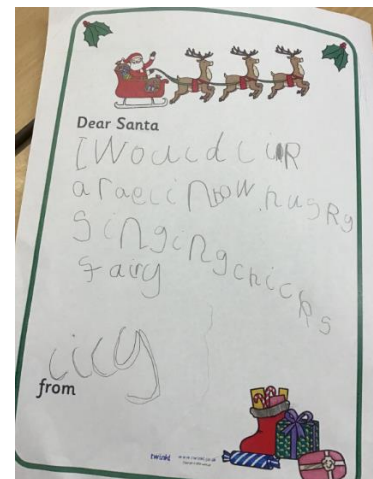 Dear Santa
I Would liR
a raeinbow hugRg
singing chichs
fairy
lily
from
twinkl www.twinkl.co.uk